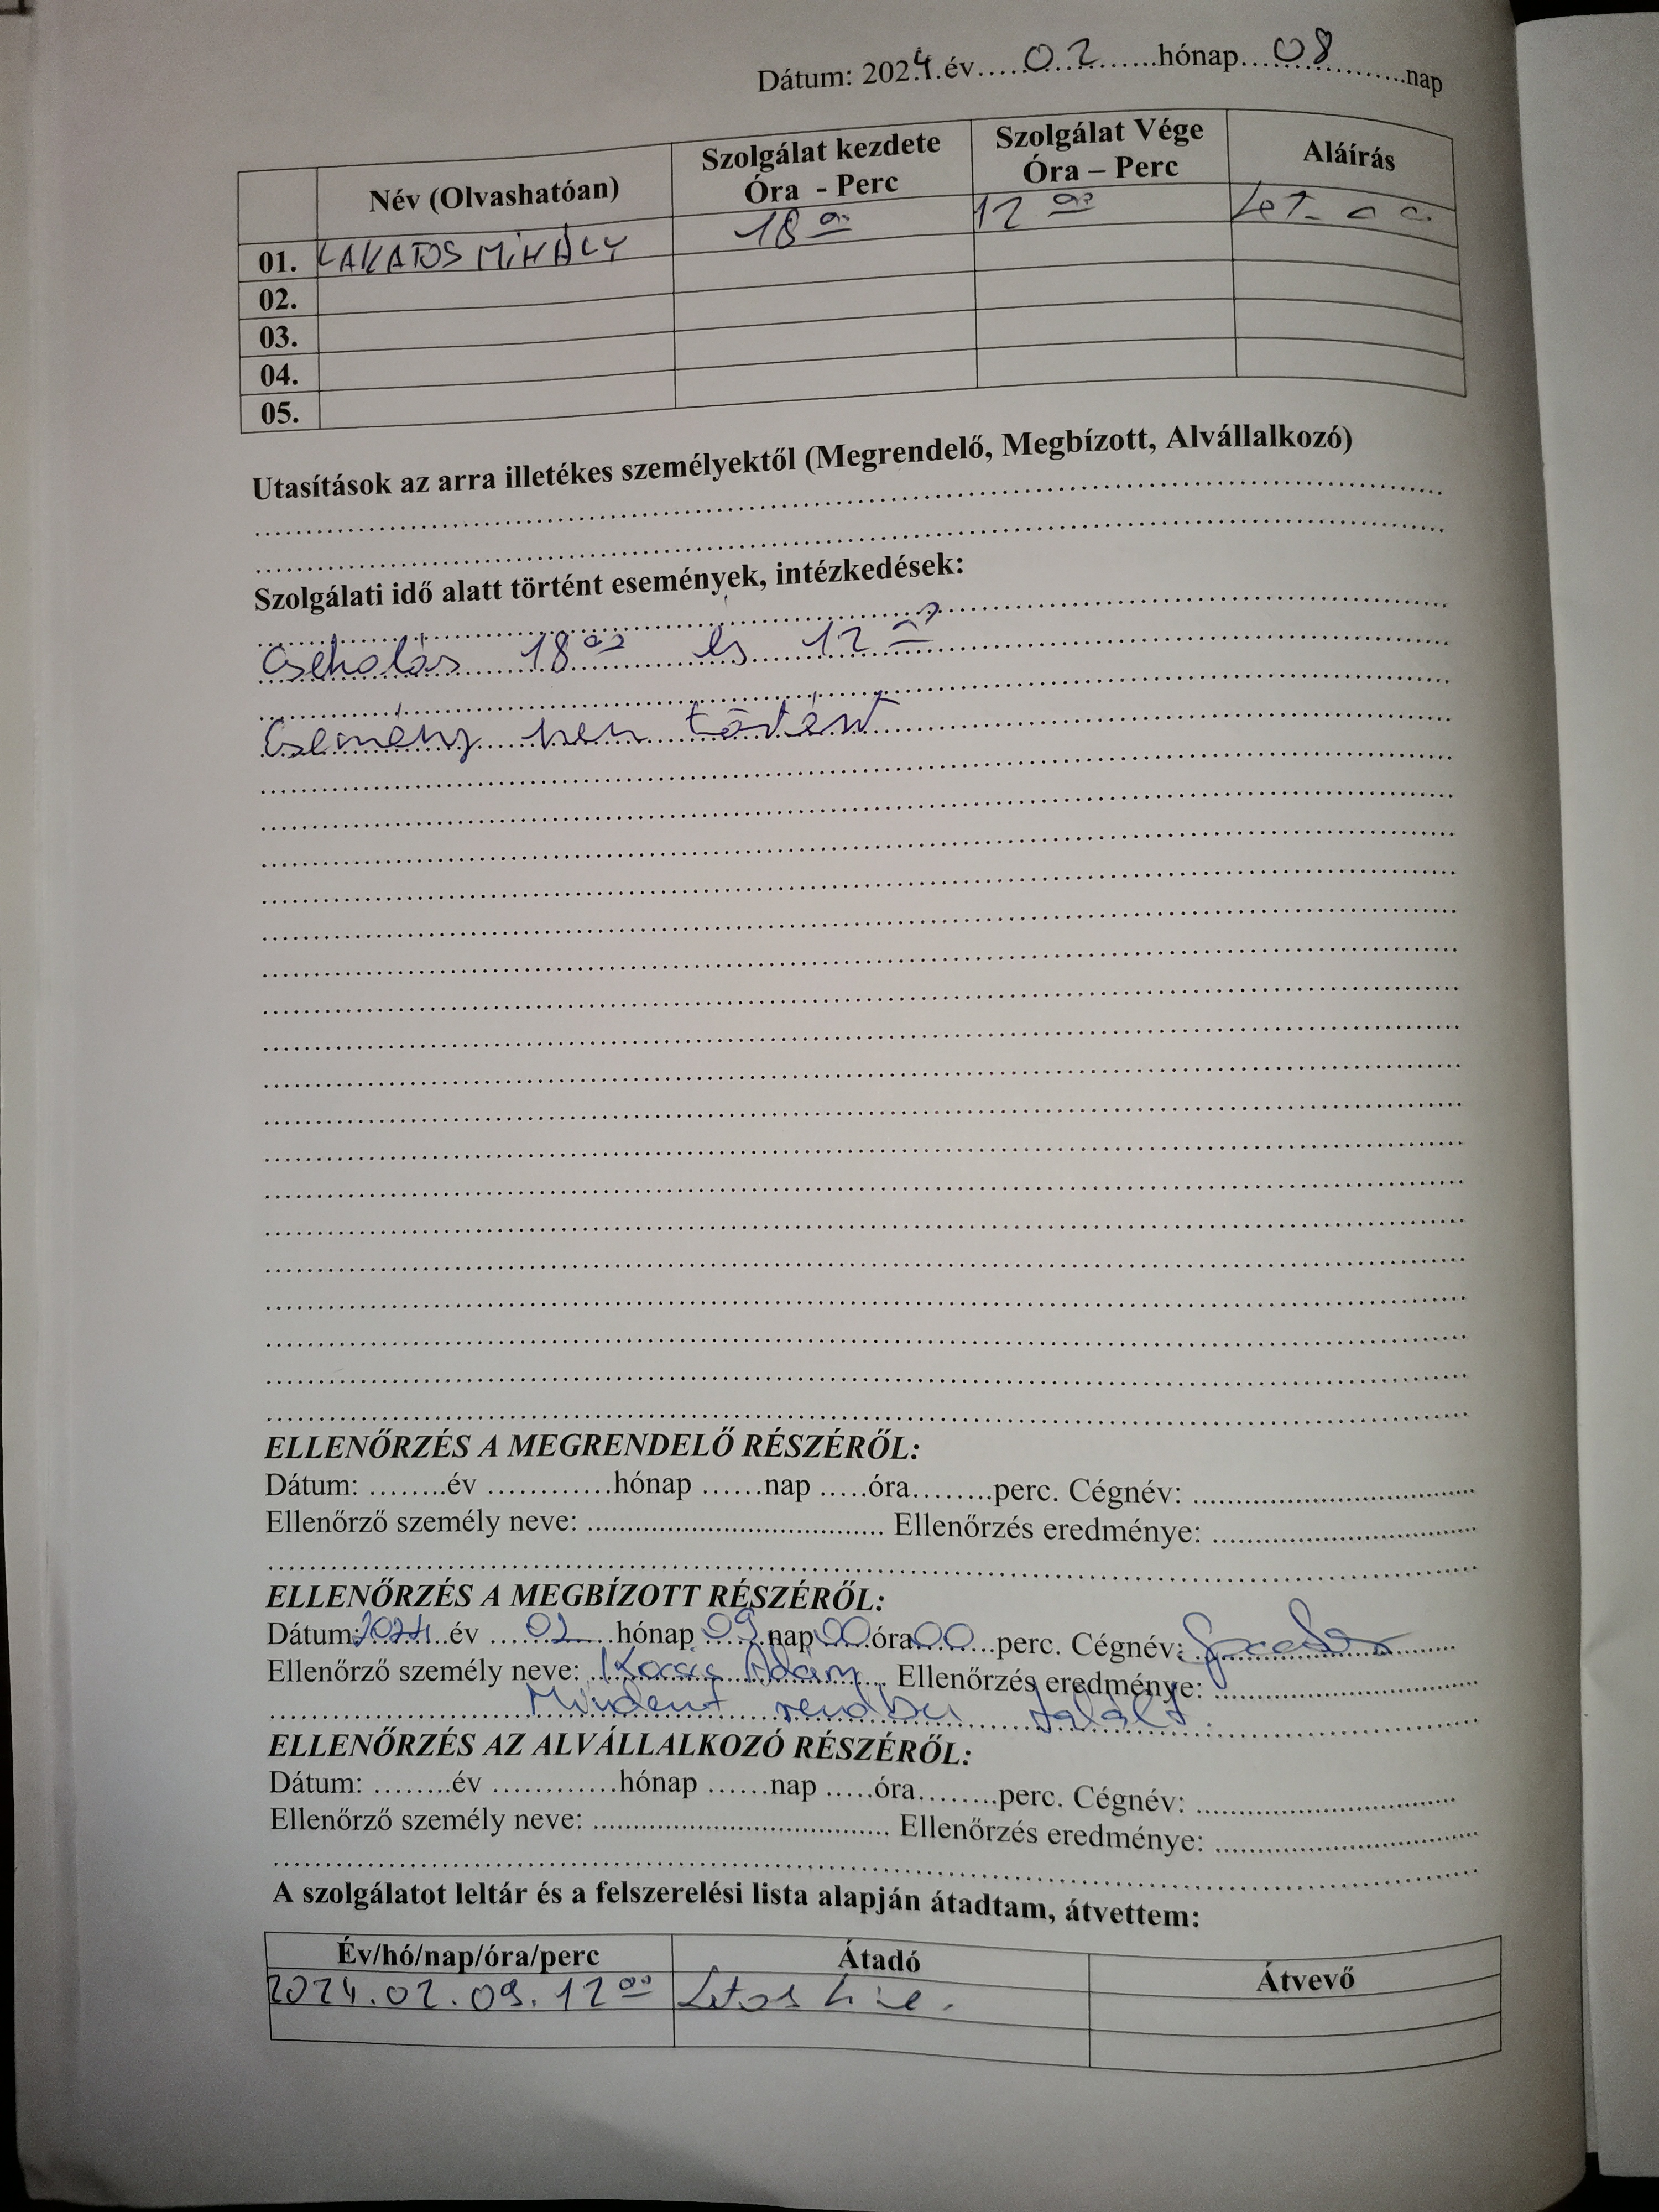 Dátum: 2024.év.....02.......hónap...08.........nap
Név (Olvashatóan) Szolgálat kezdete Óra - Perc Szolgálat Vége Óra – Perc Aláírás
01. LAKATOS MIHÁLY 18 00 12 00
02.
03.
04.
05.
Utasítások az arra illetékes személyektől (Megrendelő, Megbízott, Alvállalkozó)
Szolgálati idő alatt történt események, intézkedések:
18 00 és 12 00
Esemény nem történt
ELLENŐRZÉS A MEGRENDELŐ RÉSZÉRŐL:
Dátum: ........év ............hónap ......nap .....óra........perc. Cégnév: ....................
Ellenőrző személy neve: .................... Ellenőrzés eredménye: ....................
ELLENŐRZÉS A MEGBÍZOTT RÉSZÉRŐL:
Dátum: 2024 év 02 hónap 09 nap 00 óra 00 perc. Cégnév:
Ellenőrző személy neve: Kocsis Ádám Ellenőrzés eredménye: ....................
Mindent rendben talált.
ELLENŐRZÉS AZ ALVÁLLALKOZÓ RÉSZÉRŐL:
Dátum: ........év ............hónap ......nap .....óra........perc. Cégnév: ....................
Ellenőrző személy neve: .................... Ellenőrzés eredménye: ....................
A szolgálatot leltár és a felszerelési lista alapján átadtam, átvettem:
Év/hó/nap/óra/perc Átadó Átvevő
2024.02.09. 12 00